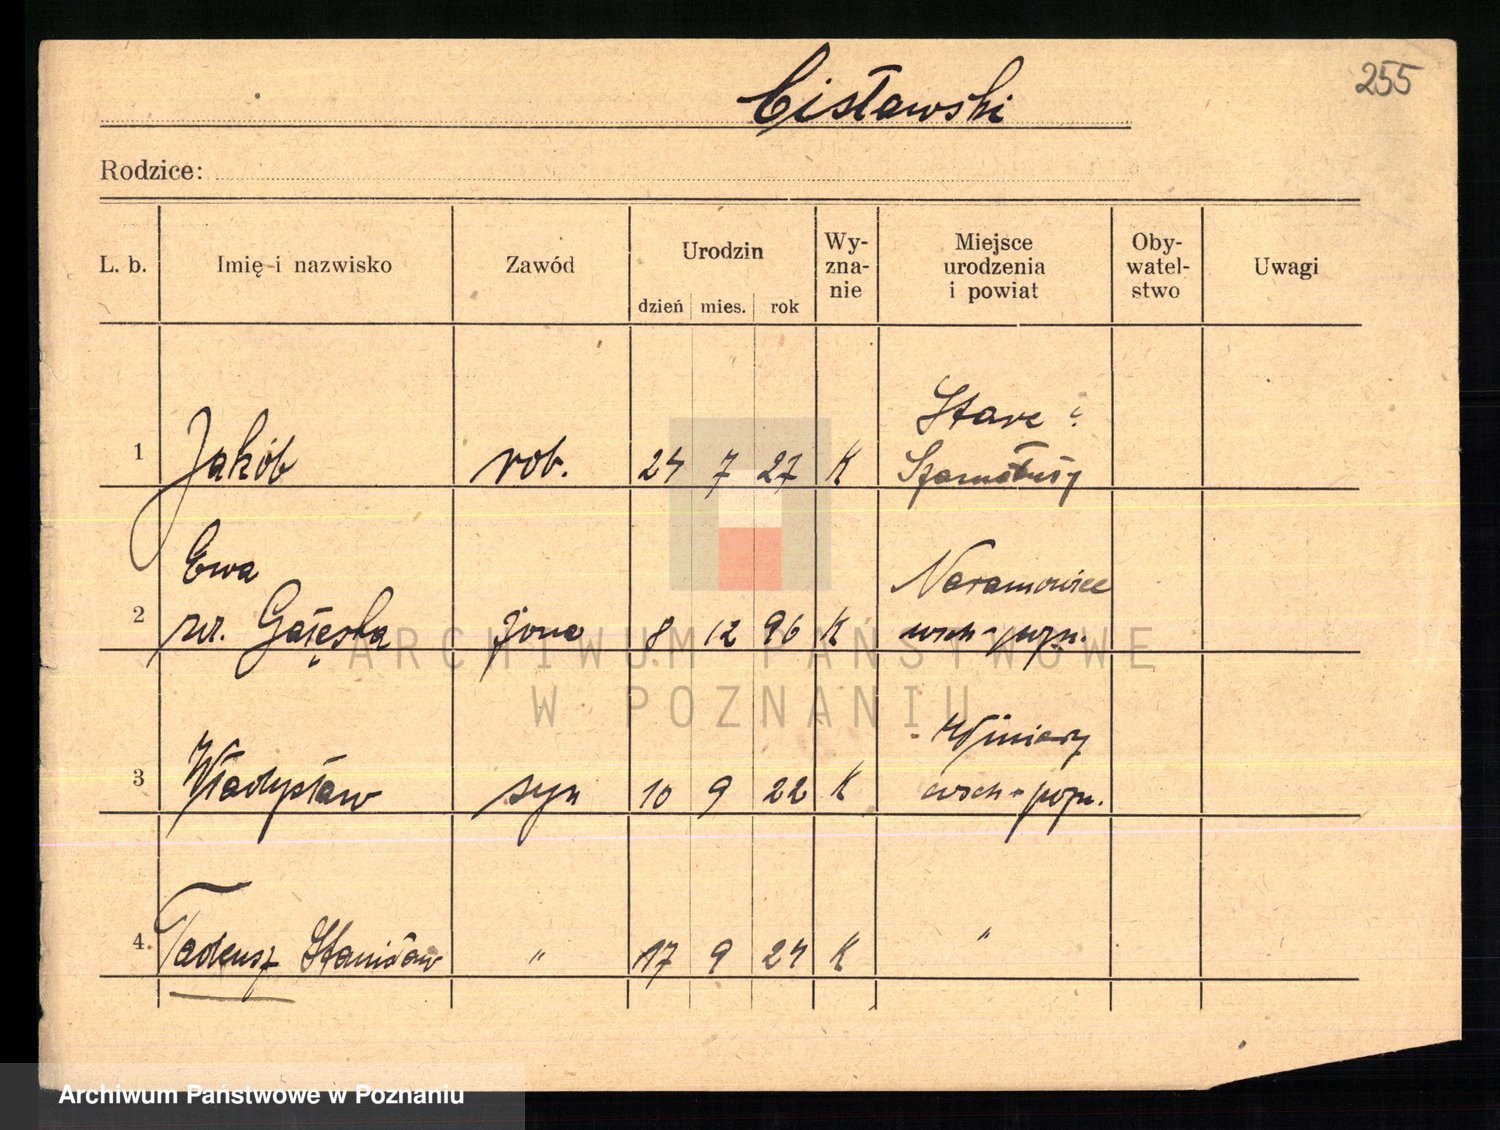 Cisławski
255
Rodzice:
L. b. Imię i nazwisko Zawód Urodzin dzień mies. rok Wy-zna-nie Miejsce urodzenia i powiat Oby-watel-stwo Uwagi
Stare
1 Jakób rob. 24 7 27 K
Ewa Naramowice
2 Gałęska żona 8 12 96 K wsch-pozn.
Winiary
3 Władysław syn 10 9 22 K wsch-pozn.
4. Tadeusz Stanisław " 17 9 24 K "
ARCHIWUM PAŃSTWOWE
W POZNANIU
Archiwum Państwowe w Poznaniu